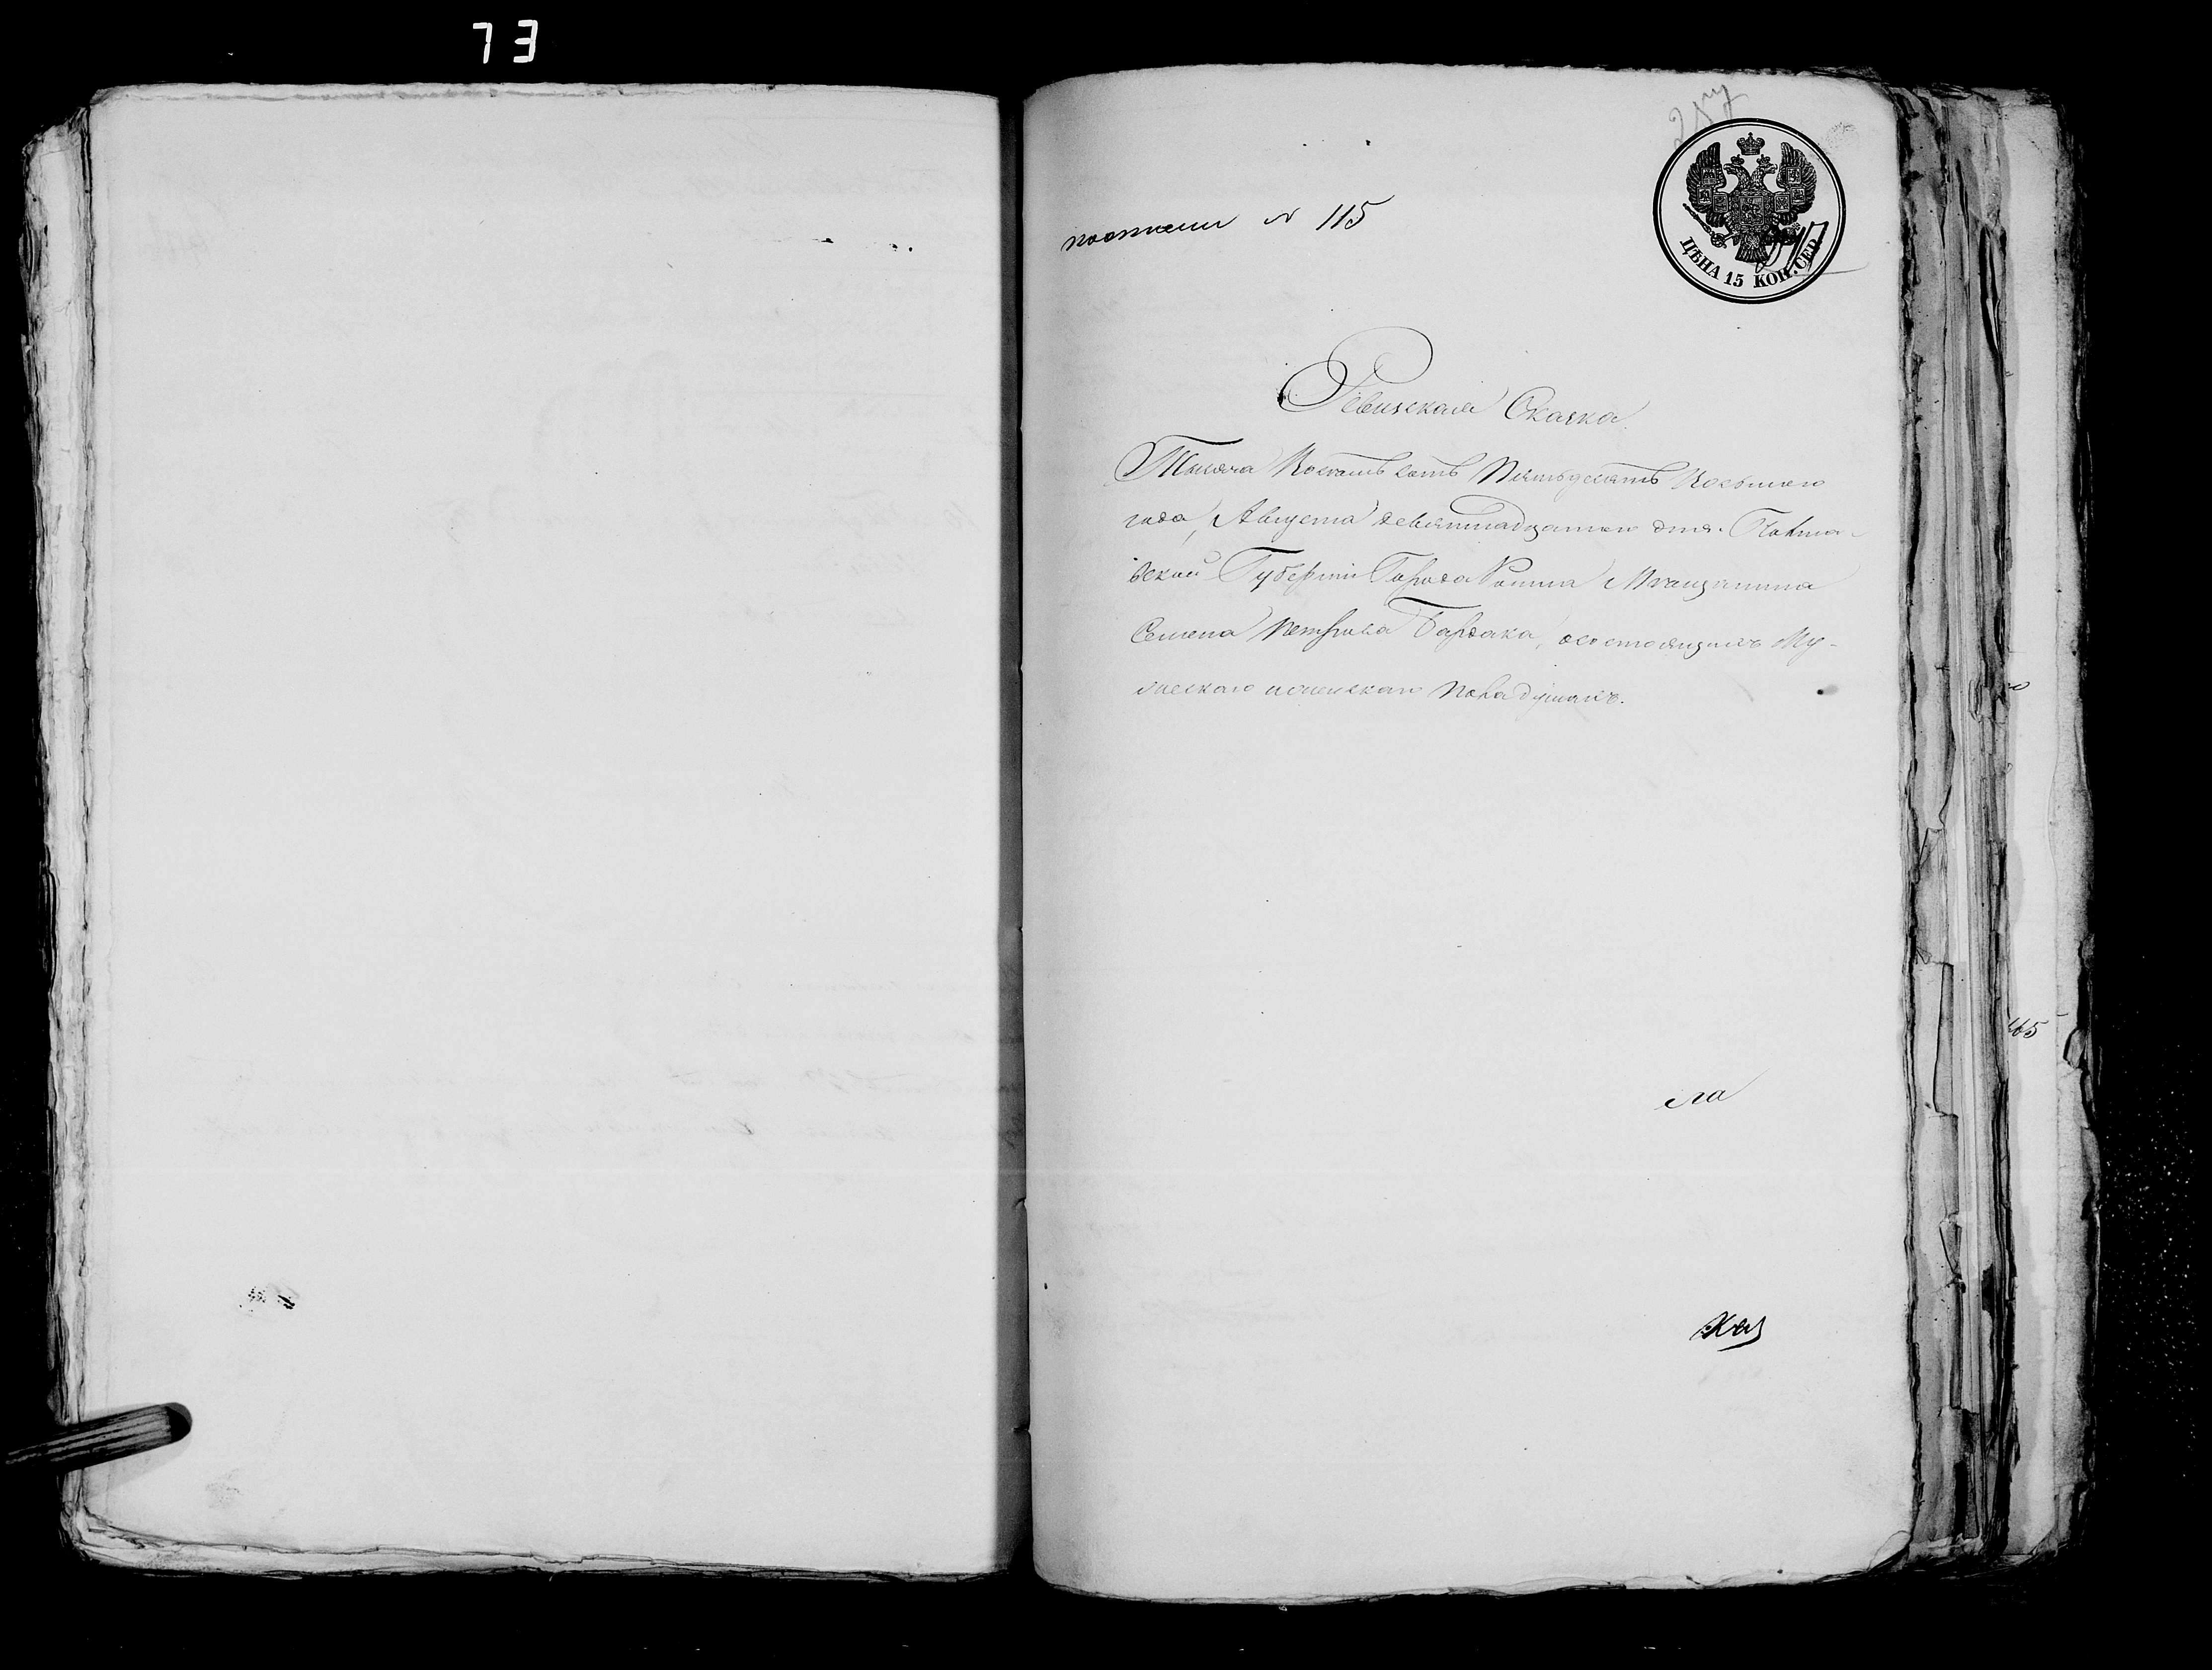 73
257
по описи № 115
ЦѢНА 15 КОП. СЕР.
Ревизская Сказка
Тысяча Восемьсотъ Пятьдесятъ Восьмого
года, Августа девятнадцатого дня. Полта-
вской Губерніи Города Ромна Мѣщанина
Семена Петрова Бардака, осостоящихъ Му-
жескаго иженскаго пола душахъ.
165
ла